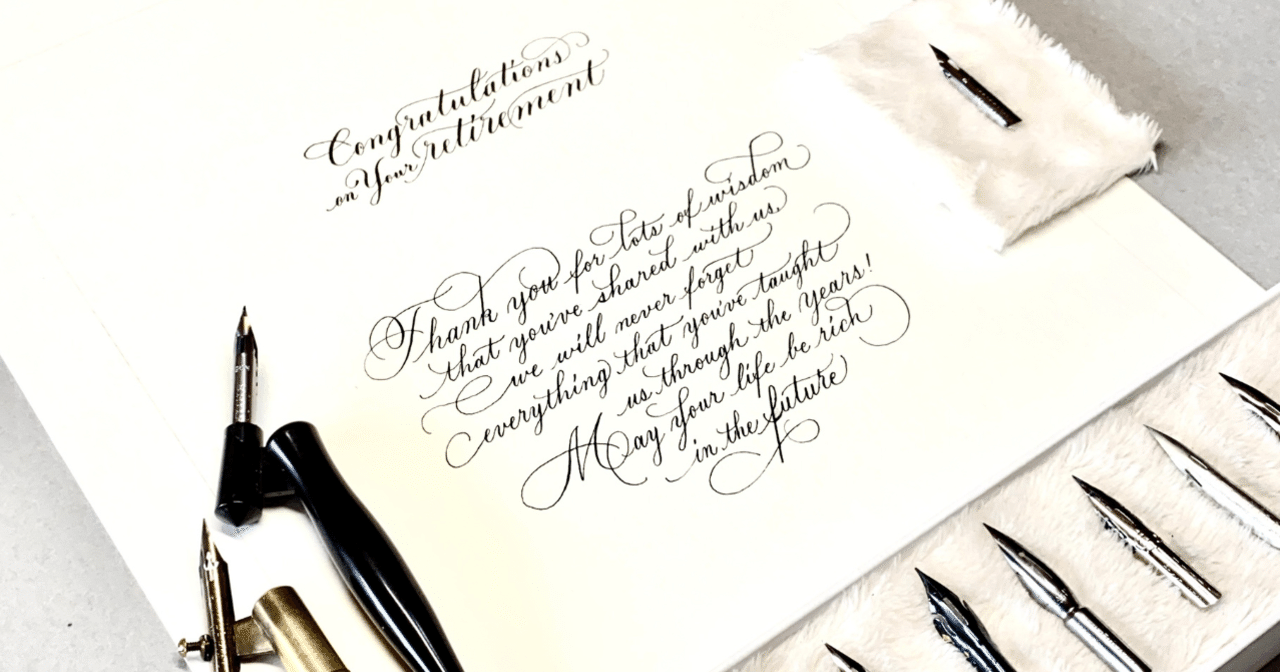 Congratulations
on Your retirement
Thank you for lots of wisdom
that you've shared with us
we will never forget
everything that you've taught
us through the years!
May your life be rich
in the future